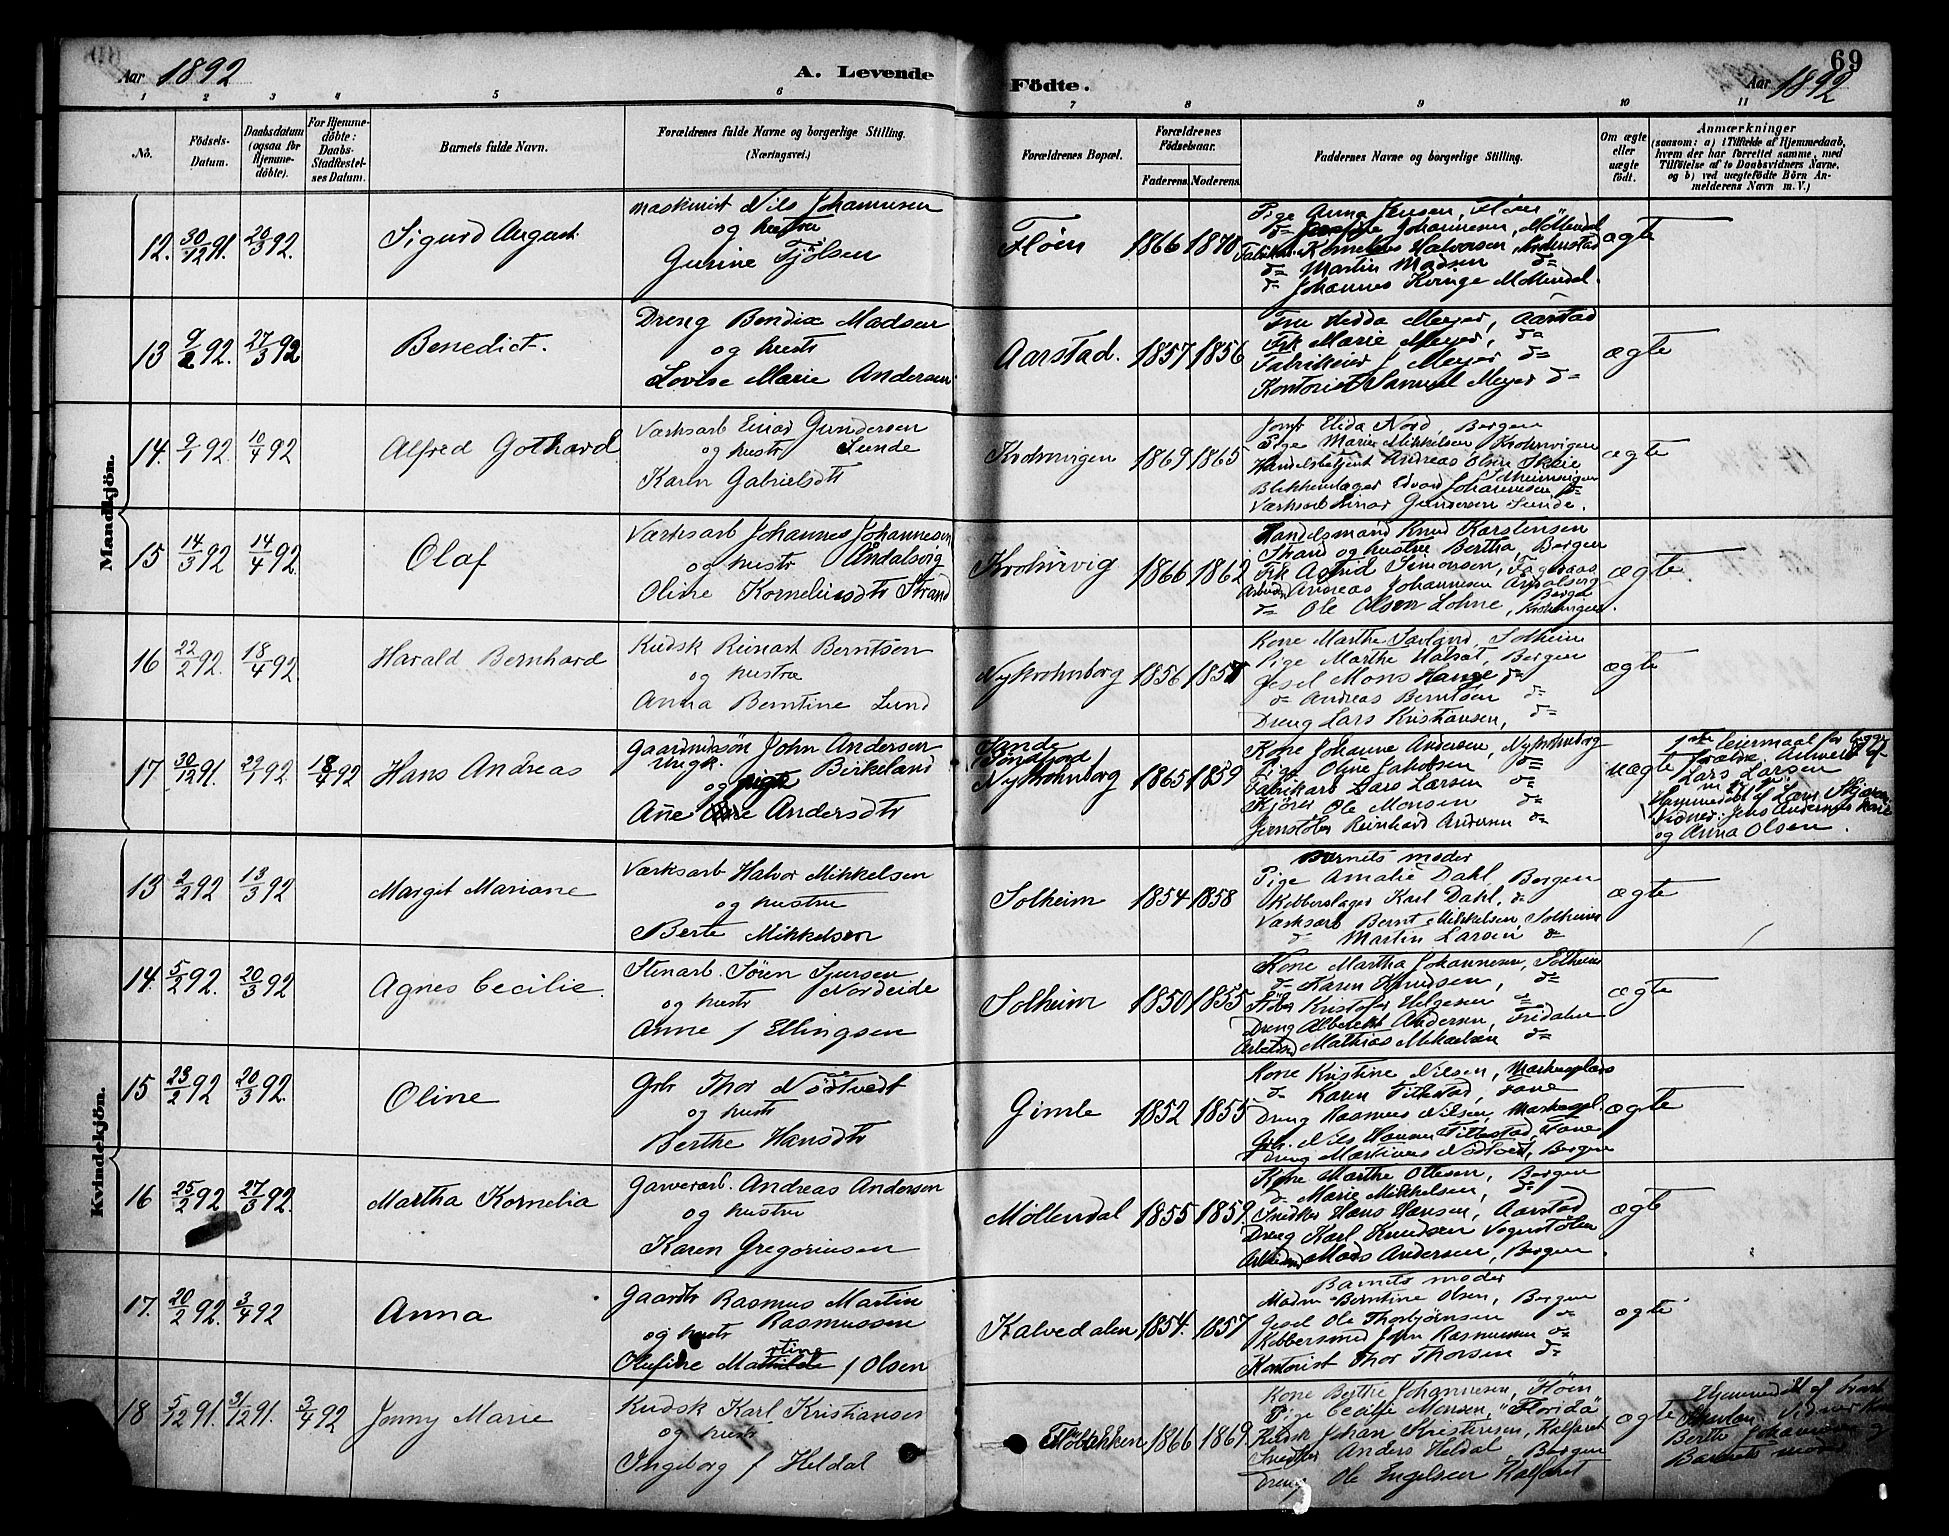 Aar 1892
A. Levende Födte.
69
Aar 1892
1 2 3 4 5 6 7 8 9 10 11
No.
Födsels-
Datum.
Daabsdatum
(ogsaa for
Hjemme-
döbte).
For Hjemme-
döbte:
Daabs-
Stadfæstel-
ses Datum.
Barnets fulde Navn.
Forældrenes fulde Navne og borgerlige Stilling.
(Næringsvei.)
Forældrenes Bopæl.
Forældrenes
Födselsaar.
Faderens. Moderens.
Faddernes Navne og borgerlige Stilling.
Om ægte
eller
uægte
födt.
Anmærkninger
(saasom: a) i Tilfælde af Hjemmedaab,
hvem der har forrettet samme, med
Tilföielse af to Daabsvidners Navne,
og b) ved uægtefödte Börn An-
melderens Navn m. V.)
Mandkjön.
12. 30/12 91. 20/3 92. Sigurd August.
Maskinist Nils Johannesen
og hustru
Gurine Fjölsen
Flöen 1866 1870
Pige Anna Jensen, Flöen
Johannesen, Möllendal
Kornelius Halvorsen,
do Martin Madsen do
do Johannes Kvinge Möllendal.
ægte
13 9/2 92. 27/3 92 Benedict.
Dreng Bendix Madsen
og hustr
Lovise Marie Andersen
Aarstad. 1857 1856
Fru Hedda Meyer, Aarstad
Frk Marie Meyer, do
Fabrikeier J Meyer do
Kontorist Samuel Meyer do
ægte
14. 9/1 92. 10/4 92 Alfred Gothard
Værksarb Einar Gundersen
og hustr Lunde
Karen Gabrielsdtr
Krohnvigen 1869 1865
Jomf Elida Nord, Bergen
Pige Marie Mikkelsen Krohnvigen
Handelsbetjent Andreas Olsen Skeie
Solheimsvigen
Blikkenslager Edvard Johannesen do
Værksarb Einar Gundersen Lunde.
ægte
15 14/3 92 14/4 92. Olaf
Værksarb Johannes Johannesen
og hustr Aandalsvig
Oline Korneliusdtr Strand
Krohnvig 1866 1862
Handelsmand Knud Karstensen
Strand og hustru Bertha, Bergen
Frk Astrid Simonsen,
Arbeider Andreas Johannesen Andalsvig
Bergen
do Ole Olsen Lohne, Krohnvigen.
ægte
16 22/2 92. 18/4 92. Harald Bernhard
Kudsk Reinart Berntsen
og hustru
Anna Berntine Lund
Nykrohnborg 1856
Kone Marthe Sætland, Solheim
Pige Marthe Bergen
Gesel Mons Hauge do
do Andreas Berntsen do
Dreng Lars Kristiansen, do
ægte
17 30/12 91. 22/1 92 18/4 92 Hans Andreas
Gaardmdssön John Andersen
Ungk. Birkeland
og pige
Ane Andersdtr
Sande
Söndfjord
Nykrohnborg 1865 1859
Kone Johanne Andersen, Nykrohnborg
Pige Oline Jakobsen do
Fabrikarb Lars Larsen do
Kjörer Ole Monsen do
Jernstöber Reinhard Andersen do
uægte
1ste leiermaal for begge
Forældre. Anmeldt af
Lars Larsen
Hjemmedöbt af Lars
Vidner: Jens Andersens kone
og Anna Olsen.
Kvindekjön.
13 2/2 92 13/3 92 Margit Mariane
Værksarb Halvor Mikkelsen
og hustru
Berte Mikkelsen
Solheim 1854 1858
Barnets moder
Pige Amalie Dahl, Bergen
Kobberslager Karl Dahl, do
Værksarb Bernt Mikkelsen, Solheim
do Martin Larsen do
ægte
14. 5/2 92. 20/3 92 Agnes Cecilie.
Stenarb. Sören Sjursen
og hustr Nordeide
Anne f Ellingsen
Solheim 1850 1855
Kone Martha Johannesen, Solheim
do Karen Knudsen, do
Kristofer Helgesen do
Dreng Alberekt Andersen, Fridalen
Arbeider Mathias Mikaelsen do
ægte
15 23/2 92 20/3 92. Oline
Grbr Thor Nödtvedt
og hustr
Berthe Hansdtr
Gimle 1852 1855
Kone Kristine Nilsen, Markusplads
do Karen Tittestad, Fane
Dreng Rasmus Nilsen, Markuspl.
Grbr. Nils Hansen Tittestad, Fane
Dreng Martinus Nödtvedt, Bergen
ægte
16 25/2 92 27/3 92. Martha Kornelia
Garverarb. Andreas Andersen
og hustru
Karen Gregoriusen
Möllendal 1855 1859.
Kone Marthe Ottesen, Bergen
do Marie Mikkelsen, do
Snedker Hans Hansen, Aarstad
Dreng Karl Knudsen Vognstölen
Arbeidsmd Mads Andersen, Bergen.
ægte
17. 20/2 92. 3/4 92 Anna
Gaardbr Rasmus Martin
og hustr Rasmussen
Olufine Mathilde f Olsen
Kalvedalen 1854. 1857
Barnets moder
Madm Berntine Olsen, Bergen
Gesel Ole Thorbjörnsen do
Kobbersmed John Rasmussen do
Kontorist Thor Thorsen do
ægte
18 5/12 91. 31/12 91. 3/4 92 Jenny Marie
Kudsk Karl Kristiansen
og hustr
Ingeborg f Heldal
Flöbakken 1866 1869.
Kone Berthe Johannesen, Flöen
Pige Cecilie Monsen, "Florida"
Kudsk Johan Kristensen, Kalfaret
Snedker Anders Heldal, Bergen
Dreng Ole Engelsen Kalfaret
ægte
Hjemmedöbt af
Vidner Kone
Berthe Johannesen og
Barnets moder